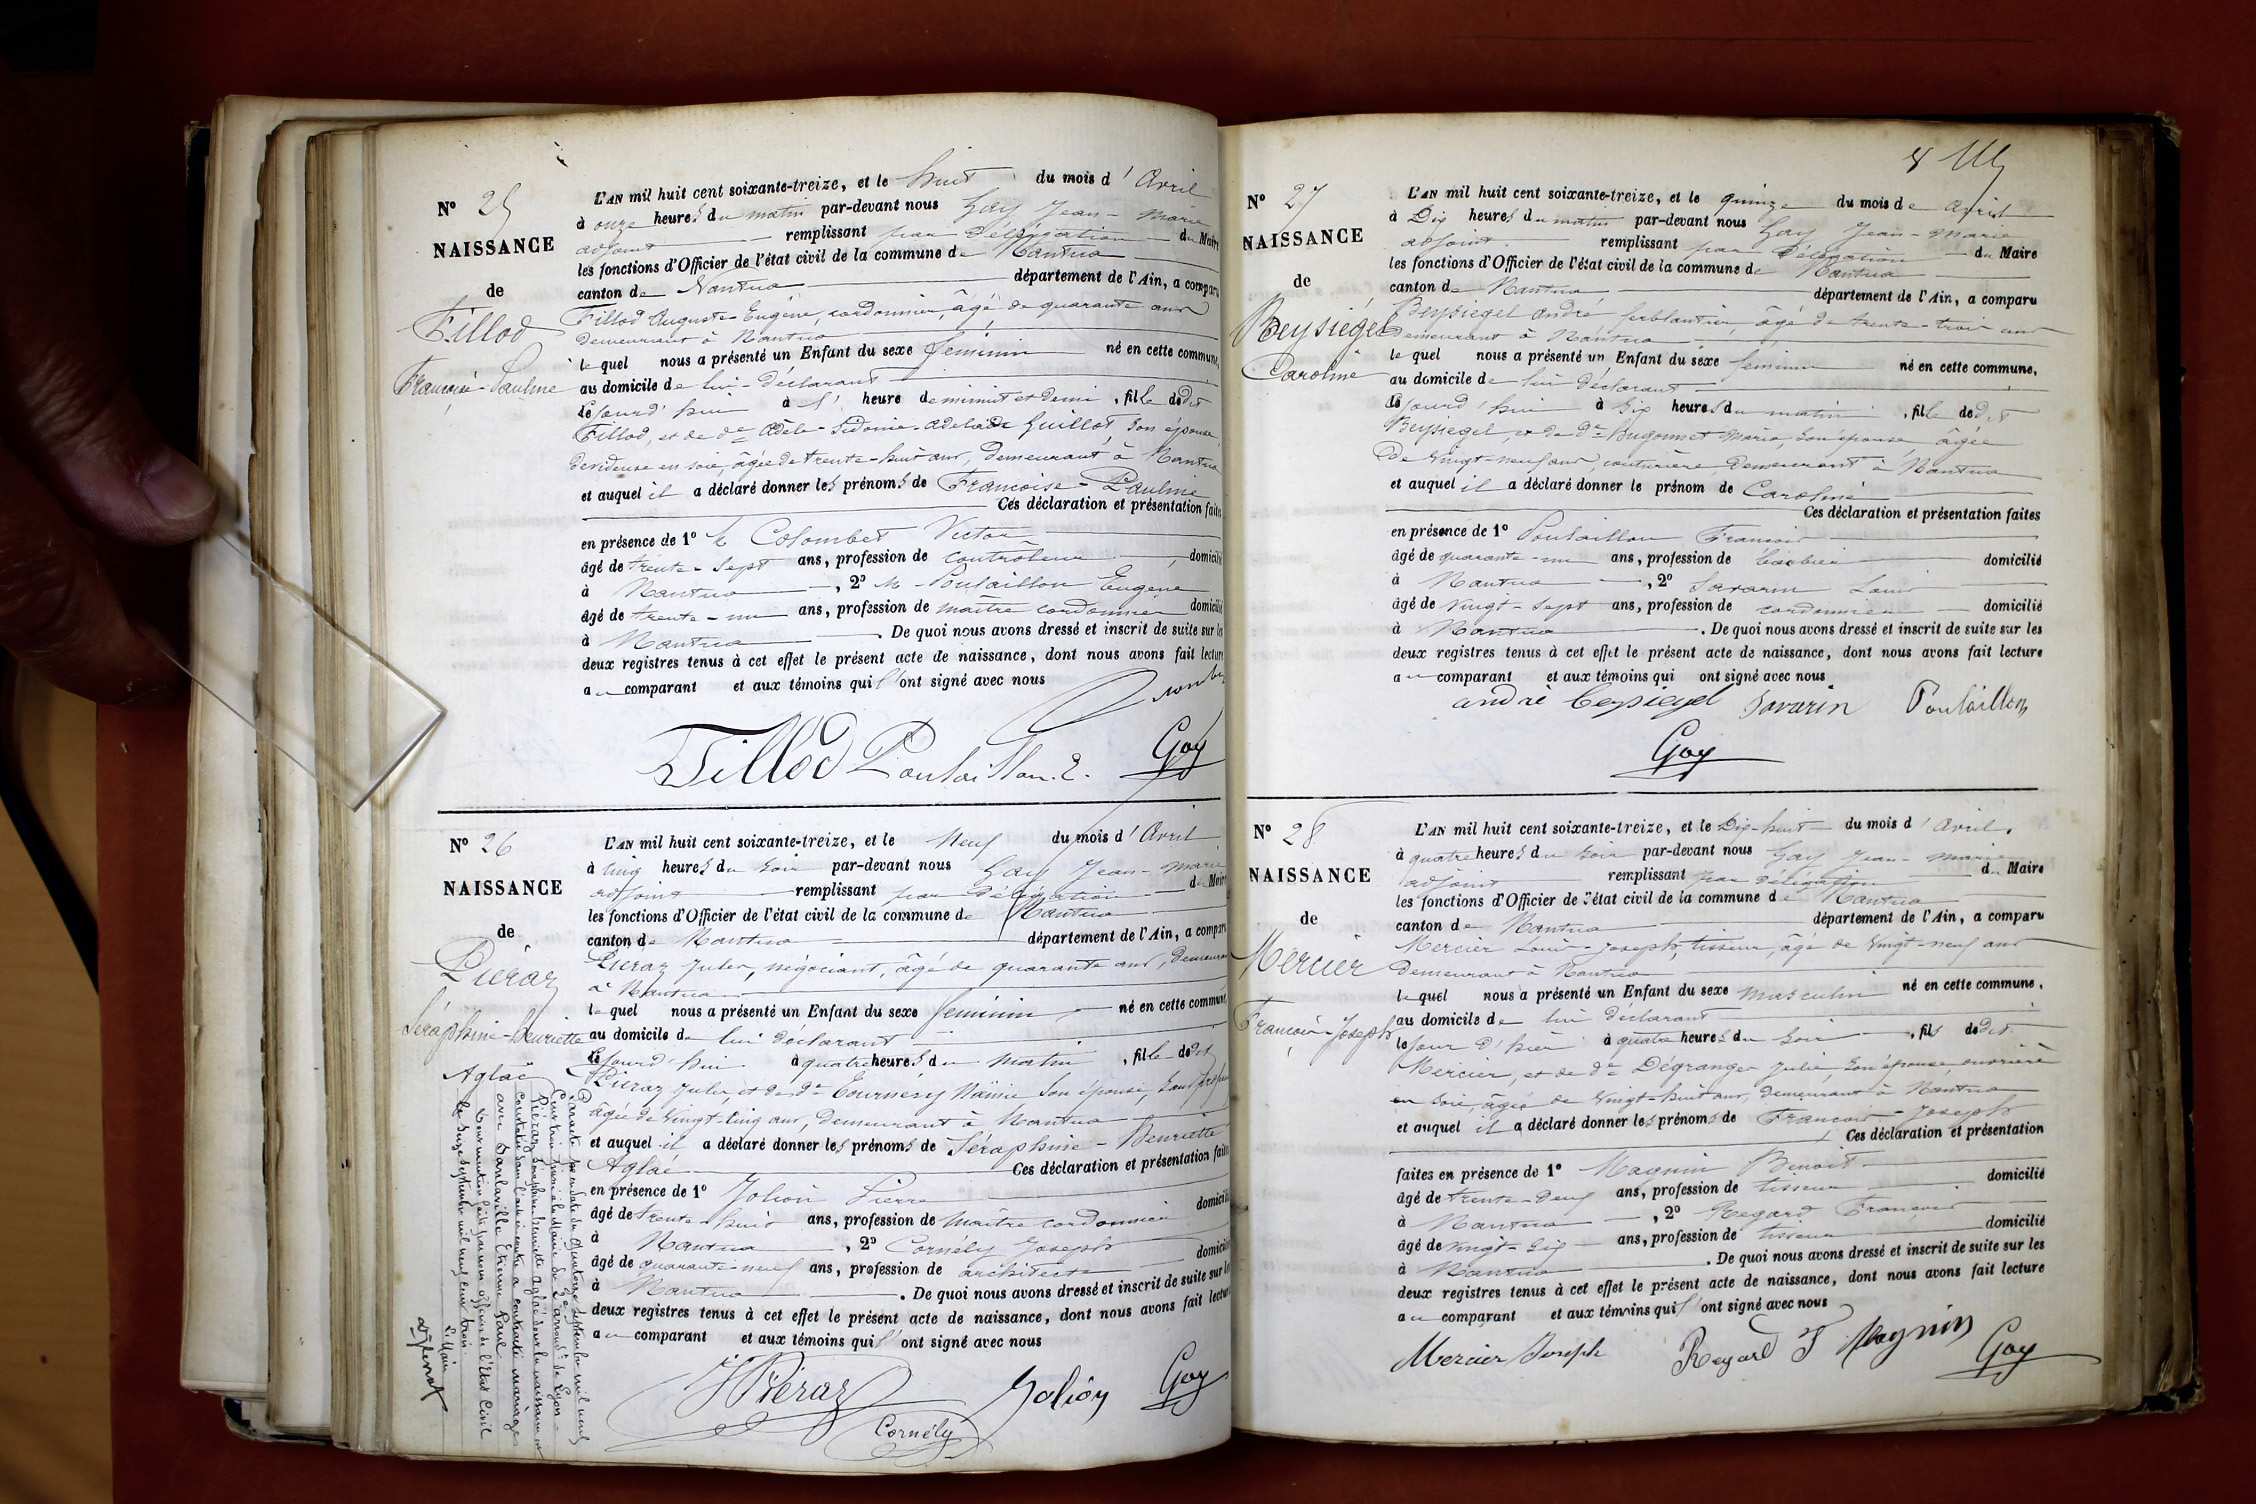 N° 25
NAISSANCE
de
Fillod
Françoise-Pauline
L'AN mil huit cent soixante-treize, et le huit du mois d'Avril
à onze heures du matin par-devant nous Goy Jean-Marie
adjoint remplissant par délégation du Maire
les fonctions d'Officier de l'état civil de la commune de Nantua
canton de Nantua département de l'Ain, a comparu
Fillod Auguste-Eugène, cordonnier, âgé de quarante ans
demeurant à Nantua
lequel nous a présenté un Enfant du sexe féminin né en cette commune,
au domicile de lui-déclarant
cejourd'hui à l' heure de minuit et demi, fille de dit
Fillod, et de de Adèle-Sidonie-Adelaïde Guillot son épouse,
dévideuse en soie, âgée de trente-huit ans, demeurant à Nantua
et auquel il a déclaré donner les prénoms de Francoise-Pauline
Ces déclaration et présentation faites
en présence de 1° M Colombet Victor
âgé de trente-sept ans, profession de controleur domicilié
à Nantua, 2° M Poulaillon Eugène
âgé de trente-un ans, profession de maître cordonnier domicilié
à Nantua. De quoi nous avons dressé et inscrit de suite sur les
deux registres tenus à cet effet le présent acte de naissance, dont nous avons fait lecture
au comparant et aux témoins qui l'ont signé avec nous
Fillod Poulaillon. E. Goy
N° 26
NAISSANCE
de
Piéraz
Séraphine-Henriette
Aglaé
L'AN mil huit cent soixante-treize, et le Neuf du mois d'Avril
à cinq heures du soir par-devant nous Goy Jean-Marie
adjoint remplissant par délégation du Maire
les fonctions d'Officier de l'état civil de la commune de Nantua
canton de Nantua département de l'Ain, a comparu
Piéraz Jules, négociant, âgé de quarante ans, demeurant
à Nantua
lequel nous a présenté un Enfant du sexe féminin né en cette commune,
au domicile de lui déclarant
cejourd'hui à quatre heures du matin, fille de dit
Pieraz Jules, et de de Tournery Naïmie son épouse, sans profession
âgée de vingt-cinq ans, demeurant à Nantua
et auquel il a déclaré donner les prénoms de Séraphine-Henriette
Aglaé Ces déclaration et présentation faites
en présence de 1° Jolion Pierre
âgé de trente-huit ans, profession de maître cordonnier domicilié
à Nantua, 2° Cornély Joseph
âgé de quarante-neuf ans, profession de architecte domicilié
à Nantua. De quoi nous avons dressé et inscrit de suite sur les
deux registres tenus à cet effet le présent acte de naissance, dont nous avons fait lecture
au comparant et aux témoins qui l'ont signé avec nous
JPiéraz Jolion Goy
Cornély
Par acte en date du quatorze septembre mil neuf
cent trois, passé à la Mairie du 2e arrondt de Lyon
Piéraz Séraphine Henriette Aglaé dont la naissance est
constatée dans l'acte ci-contre a contracté mariage
avec Etienne Paul
Pour mention faite par nous officier de l'État Civil
le seize septembre mil neuf cent trois.
Le Maire
8
N° 27
NAISSANCE
de
Beysiégel
Caroline
L'AN mil huit cent soixante-treize, et le quinze du mois de Avril
à Dix heures du matin par-devant nous Goy Jean-Marie
adjoint remplissant par délégation du Maire
les fonctions d'Officier de l'état civil de la commune de Nantua
canton de Nantua département de l'Ain, a comparu
Beysiegel André ferblantier, âgé de trente-trois ans
demeurant à Nantua
lequel nous a présenté un Enfant du sexe féminin né en cette commune,
au domicile de lui déclarant
cejourd'hui à six heures du matin, fille de dit
Beysiegel, et de de Hugonnet Maria, son épouse âgée
de vingt-neuf ans, couturière demeurant à Nantua
et auquel il a déclaré donner le prénom de Caroline
Ces déclaration et présentation faites
en présence de 1° Poulaillon François
âgé de quarante-un ans, profession de barbier domicilié
à Nantua, 2° Savarin Louis
âgé de vingt-sept ans, profession de cordonnier domicilié
à Nantua. De quoi nous avons dressé et inscrit de suite sur les
deux registres tenus à cet effet le présent acte de naissance, dont nous avons fait lecture
au comparant et aux témoins qui ont signé avec nous
andré Beysiegel Savarin Poulaillon
Goy
N° 28
NAISSANCE
de
Mercier
François-Joseph
L'AN mil huit cent soixante-treize, et le Dix-huit du mois d'Avril.
à quatre heures du soir par-devant nous Goy Jean-Marie
adjoint remplissant par délégation du Maire
les fonctions d'Officier de l'état civil de la commune de Nantua
canton de Nantua département de l'Ain, a comparu
Mercier Louis-Joseph, tisseur, âgé de vingt-neuf ans
demeurant à Nantua
lequel nous a présenté un Enfant du sexe masculin né en cette commune,
au domicile de lui déclarant
le jour d'hier à quatre heures du soir, fils de dit
Mercier, et de de Dégranges Julie, son épouse, ouvrière
en soie, âgée de vingt-huit ans, demeurant à Nantua
et auquel il a déclaré donner les prénoms de François-Joseph
Ces déclaration et présentation
faites en présence de 1° Magnin Benoît domicilié
âgé de trente-neuf ans, profession de tisseur
à Nantua, 2° Regard François
âgé de vingt-six ans, profession de tisseur domicilié
à Nantua. De quoi nous avons dressé et inscrit de suite sur les
deux registres tenus à cet effet le présent acte de naissance, dont nous avons fait lecture
au comparant et aux témoins qui l'ont signé avec nous
Mercier Joseph Regard F Magnin Goy